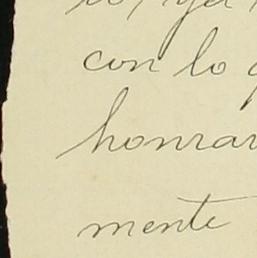 con lo
honrar
mente